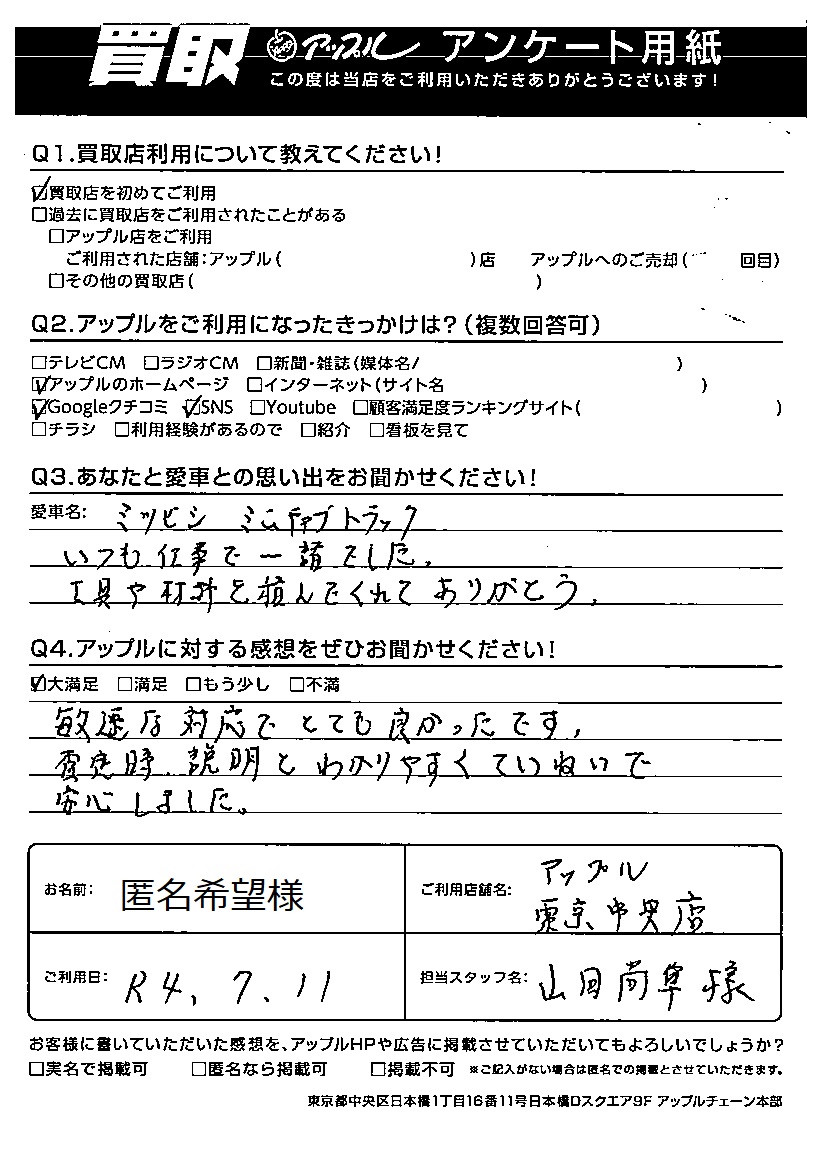 買取 アップル アンケート用紙
この度は当店をご利用いただきありがとうございます!
Q1.買取店利用について教えてください!
☑買取店を初めてご利用
□過去に買取店をご利用されたことがある
□アップル店をご利用
ご利用された店舗:アップル( )店 アップルへのご売却( 回目)
□その他の買取店( )
Q2.アップルをご利用になったきっかけは?(複数回答可)
□テレビCM □ラジオCM □新聞・雑誌(媒体名/ )
☑アップルのホームページ □インターネット(サイト名 )
☑Googleクチコミ ☑SNS □Youtube □顧客満足度ランキングサイト( )
□チラシ □利用経験があるので □紹介 □看板を見て
Q3.あなたと愛車との思い出をお聞かせください!
愛車名: ミツビシ ミニキャブトラック
いつも仕事で一諸でした。
工具や材料を積んでくれてありがとう。
Q4.アップルに対する感想をぜひお聞かせください!
☑大満足 □満足 □もう少し □不満
敏速な対応でとても良かったです。
査定時、説明とわかりやすくていねいで
安心しました。
お名前: 匿名希望様
ご利用店舗名: アップル
東京中央店
ご利用日: R4、7、11
担当スタッフ名: 山田尚隼様
お客様に書いていただいた感想を、アップルHPや広告に掲載させていただいてもよろしいでしょうか?
□実名で掲載可 □匿名なら掲載可 □掲載不可 ※ご記入がない場合は匿名での掲載とさせていただきます。
東京都中央区日本橋1丁目16番11号日本橋Dスクエア9F アップルチェーン本部